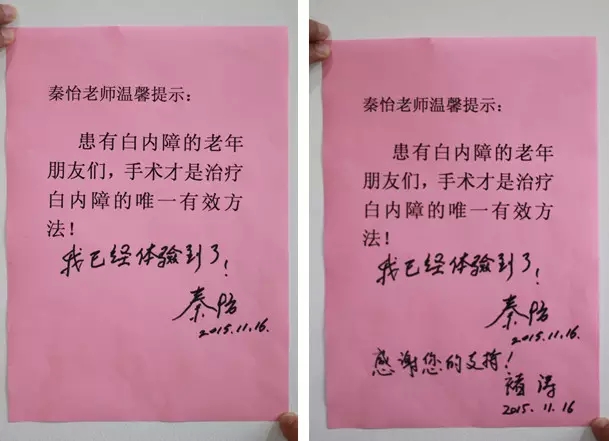 秦怡老师温馨提示：
患有白内障的老年
朋友们，手术才是治疗
白内障的唯一有效方
法！
我已经体验到了！
秦怡
2015.11.16.
秦怡老师温馨提示：
患有白内障的老年
朋友们，手术才是治疗
白内障的唯一有效方
法！
我已经体验到了！
秦怡
2015.11.16.
感谢您的支持！
2015.11.16